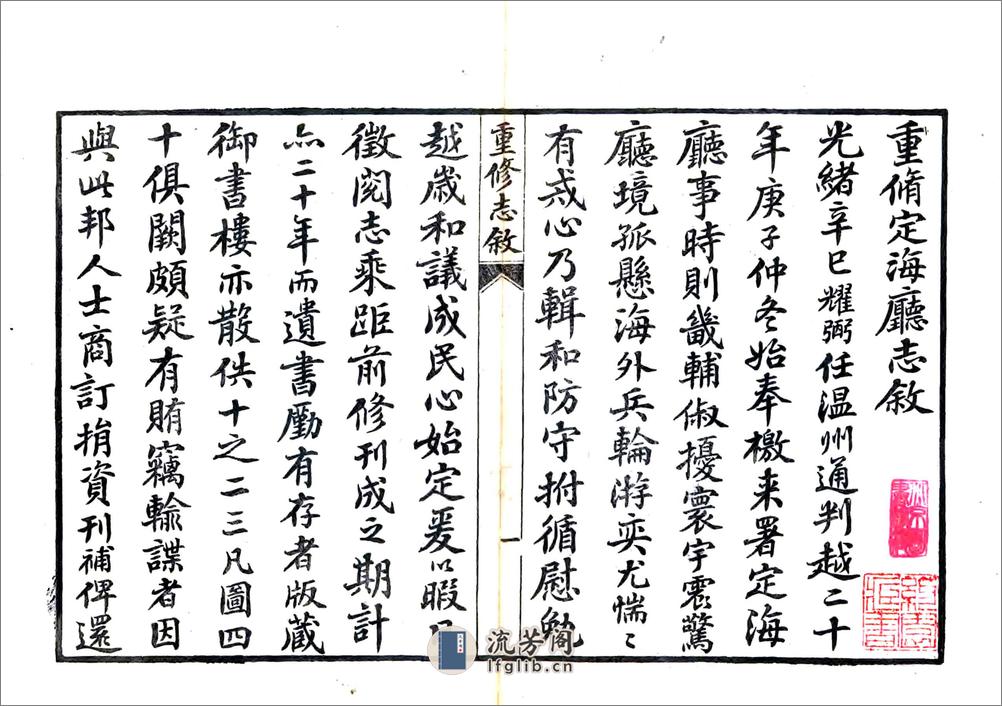 重脩定海廳志敘
光緒辛巳耀弼任温州通判越二十
年庚子仲冬始奉檄来署定海
廳事時則畿輔俶擾寰宇震驚
廳境孤懸海外兵輪游奕尤惴〻
有戒心乃輯和防守拊循慰勉
重修志敘
一
越歳和議成民心始定爰以暇日
徵閲志乘距前修刊成之期計
亦二十年而遺書尠有存者版蔵
御書樓亦散佚十之二三凡圖四
十俱闕頗疑有賄竊輸諜者因
與此邦人士商訂捐資刊補俾還
流芳阁
lfglib.cn